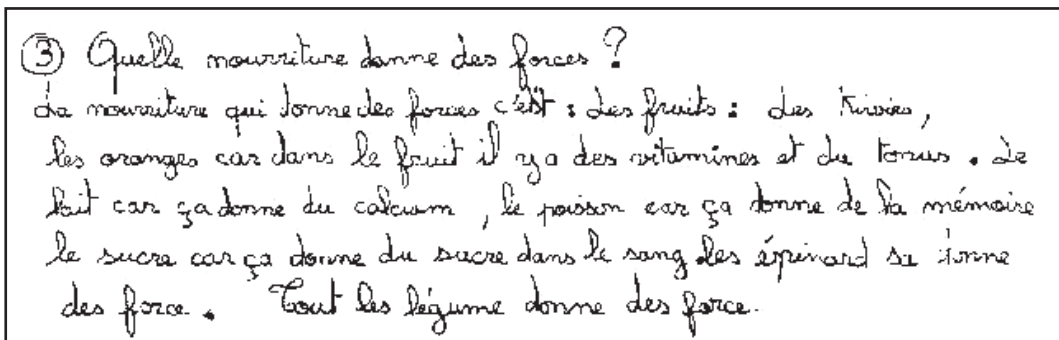 ③ Quelle nourriture donne des forces ?
La nourriture qui donne des forces c'est : Les fruits : Les kiwies,
les oranges car dans le fruit il y a des vitamines et du tonus. Le
lait car ça donne du calcium, le poisson car ça donne de la mémoire
le sucre car ça donne du sucre dans le sang les épinard sa donne
des force. Tout les légume donne des force.